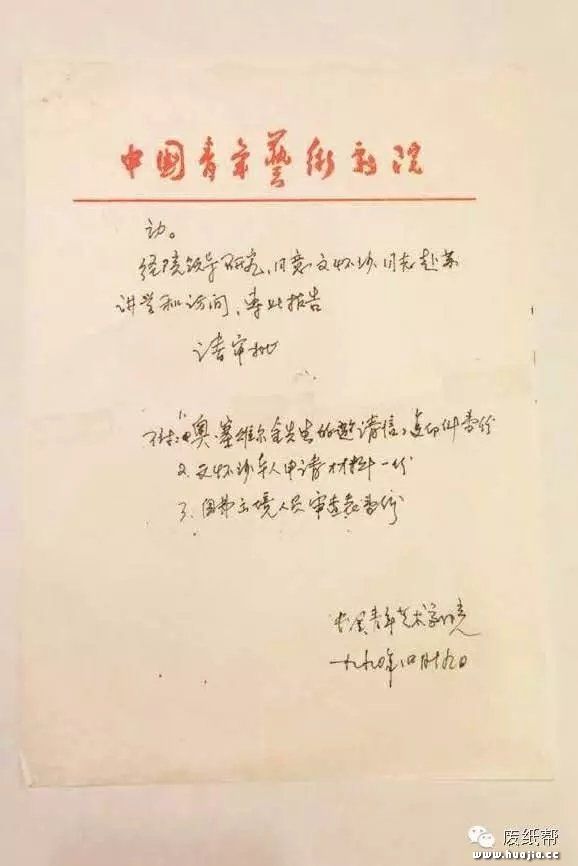 中国青年藝術劇院
动。
经院领导研究,同意文怀沙同志赴苏
讲学和访问,专此报告
请审批
附:1.奥·塞维尔金先生的邀请信,复印件壹份
2.文怀沙本人申请材料一份
3.因苏出境人员审查表壹份
中国青年艺术剧院
一九九〇年四月十九日
废纸帮
www.huajia.cc